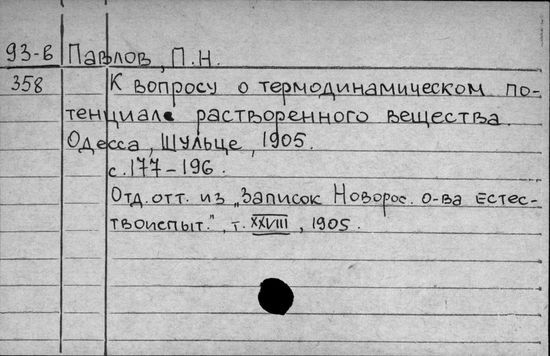 93-в Павлов, П.Н.
358 К вопросу о термодинамическом по-
тенциале растворенного вещества.
Одесса, Шульце, 1905.
с.177-196.
Отд.отт. из „Записок Новорос. о-ва Естес-
твоиспыт.", т. XXVIII, 1905.